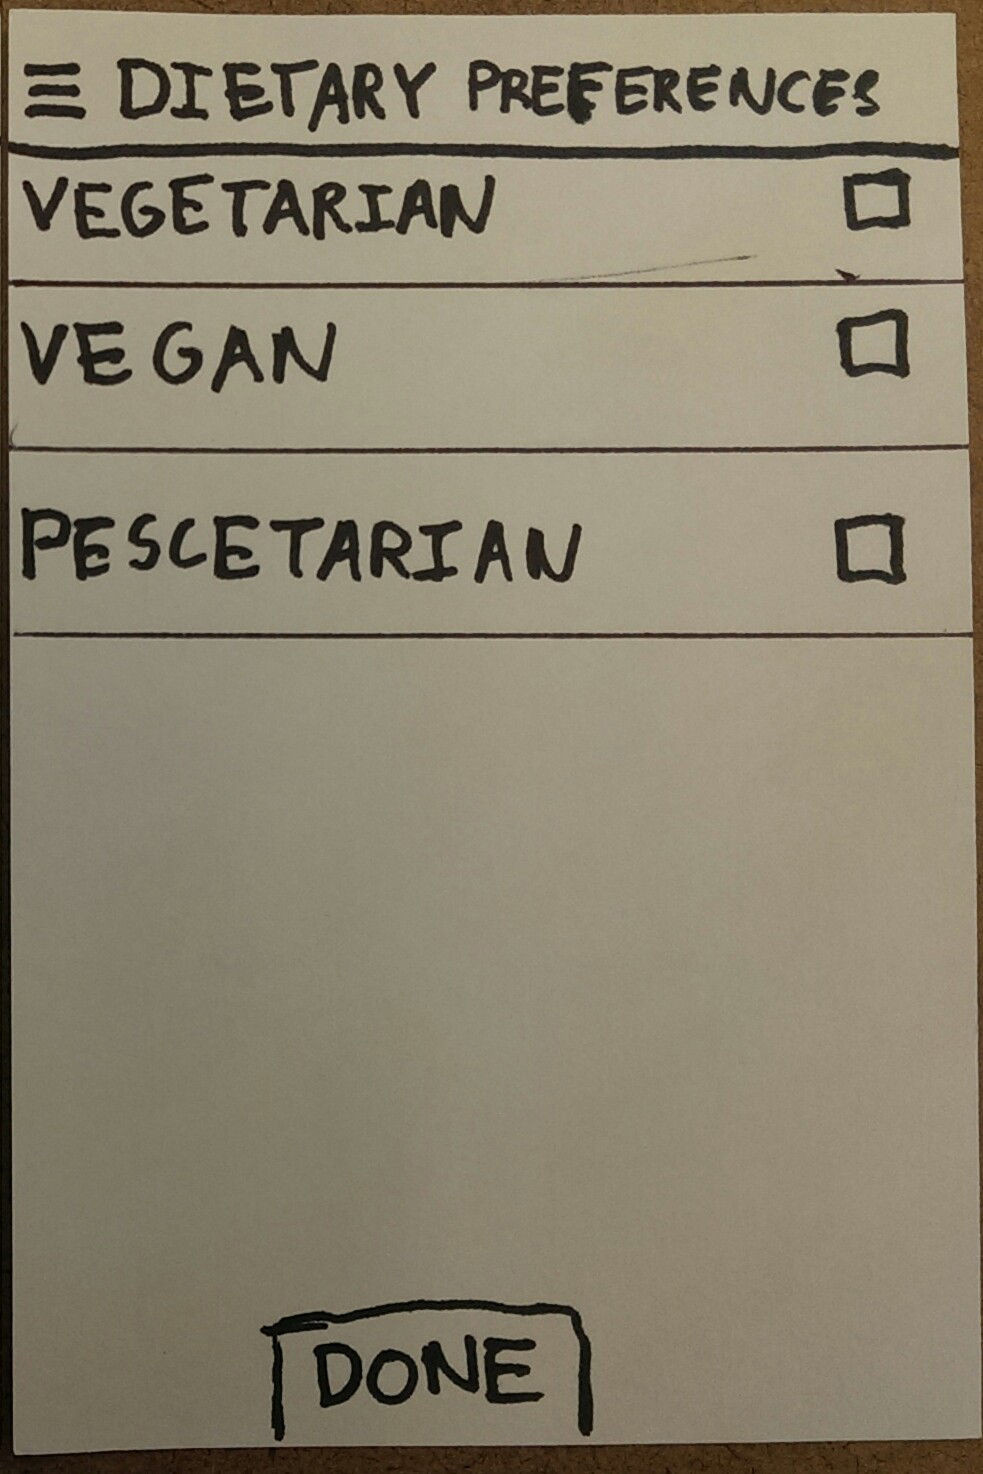 DIETARY PREFERENCES
VEGETARIAN
VEGAN
PESCETARIAN
DONE